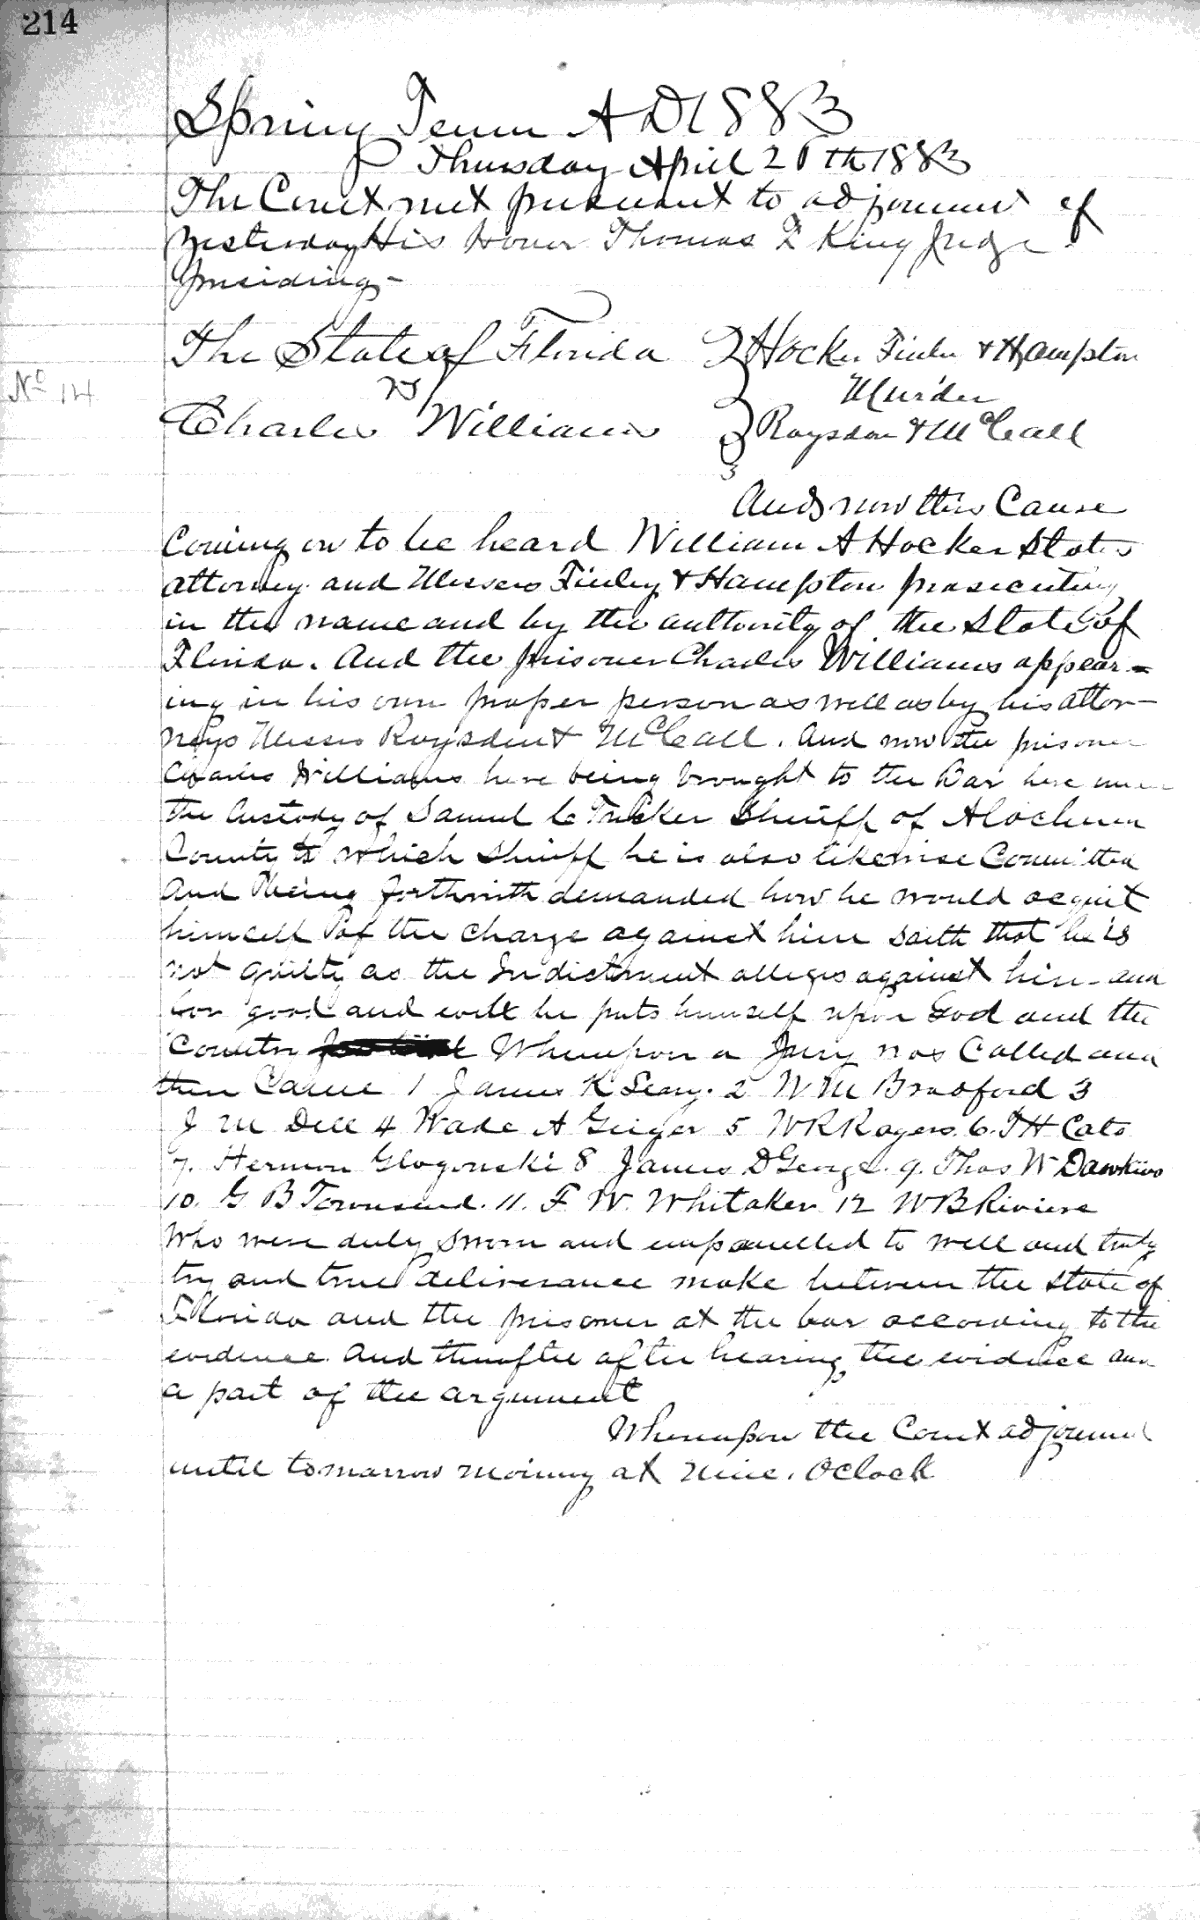 214
Spring Term A D 1883
Thursday April 26th 1883
The Court met pursuant to adjournment of
yesterday His Honor Thomas F King Judge
presiding -
The State of Florida Hocker Finley & Hampton
No 14
vs Murder
Charles Williams Roysdon & McCall
And now this Cause
Coming on to be heard William A Hocker States
attorney and Messers Finley & Hampton prosecuting
in the name and by the authority of the State of
Florida. And the prisoner Charles Williams appear=
ing in his own proper person as well as by his attor-
neys Messers Roysdon & McCall. And now the prisoner
Charles Williams here being brought to the Bar here under
the Custody of Samuel C Tucker Sheriff of Alachua
County to which Sheriff he is also likewise Committed
And being forthwith demanded how he would acquit
himself of the charge against him saith that he is
not guilty as the Indictment alleges against him and
for good and evil he puts himself upon God and the
Country Whereupon a Jury was Called and
then Came 1 James K Seay. 2 W M Bradford 3
J M Dell 4 Wade A Geiger 5 W R Rogers 6. T H Cato
7. Hermon Glogowski 8 James D George. 9. Thos W Dawkins
10. G B Townsend. 11. F. W. Whitaker 12 W B Riviere
Who were duly sworn and empanelled to well and truly
try and true deliverance make between the State of
Florida and the prisoner at the bar according to the
evidence. And thereafter after hearing the evidence and
a part of the argument
Whereupon the Court adjourned
until tomarrow morning at nine. Oclock